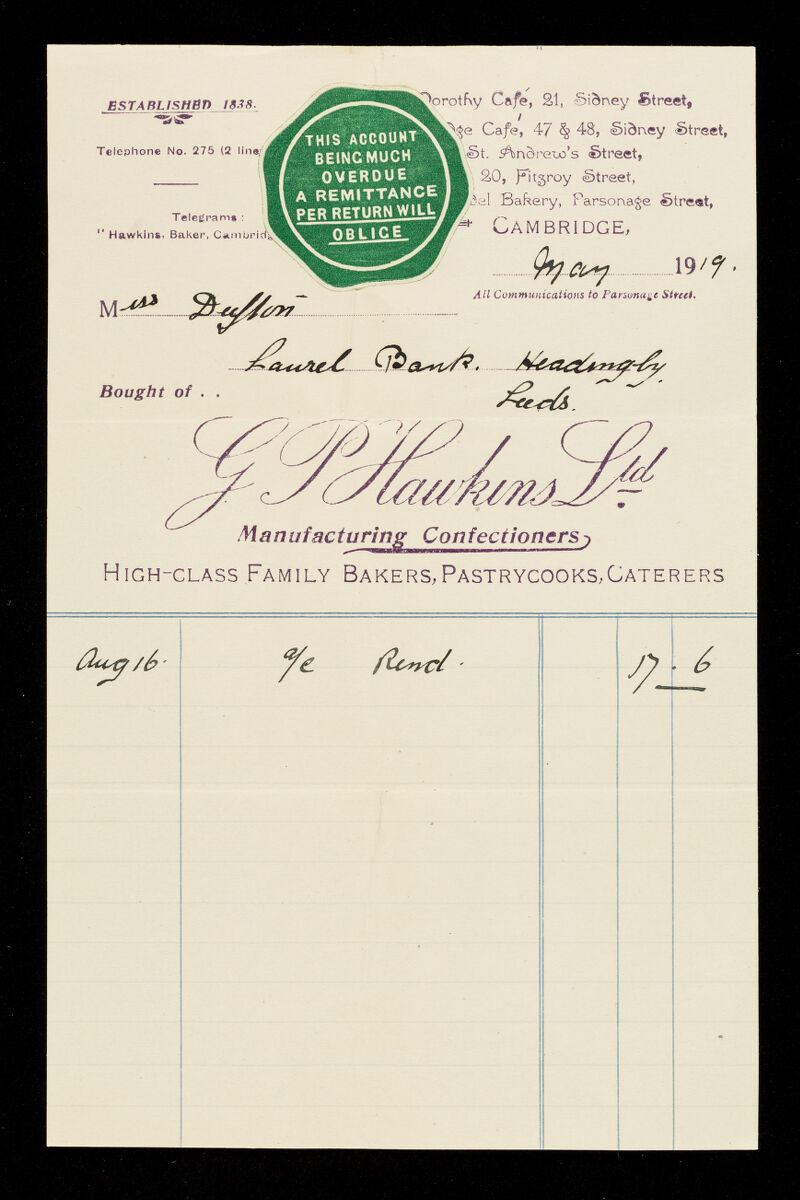 ESTABLISHED 1838.
Telephone No. 275 (2 line
Telegrams:
"Hawkins, Baker, Cambridg
THIS ACCOUNT
BEING MUCH
OVERDUE
A REMITTANCE
PER RETURN WILL
OBLIGE
Dorothy Café, 21, Sidney Street,
dge Café, 47 & 48, Sidney Street,
St. Andrew's Street,
20, Fitzroy Street,
del Bakery, Parsonage Street,
CAMBRIDGE,
May 1919.
All Communications to Parsonage Street.
Miss
Laurel Bank. Headingly,
Leeds.
Bought of . .
G P Hawkins Ltd.
Manufacturing Confectioners,
HIGH-CLASS FAMILY BAKERS, PASTRYCOOKS, CATERERS
Aug 16. a/c Rend. 17. 6